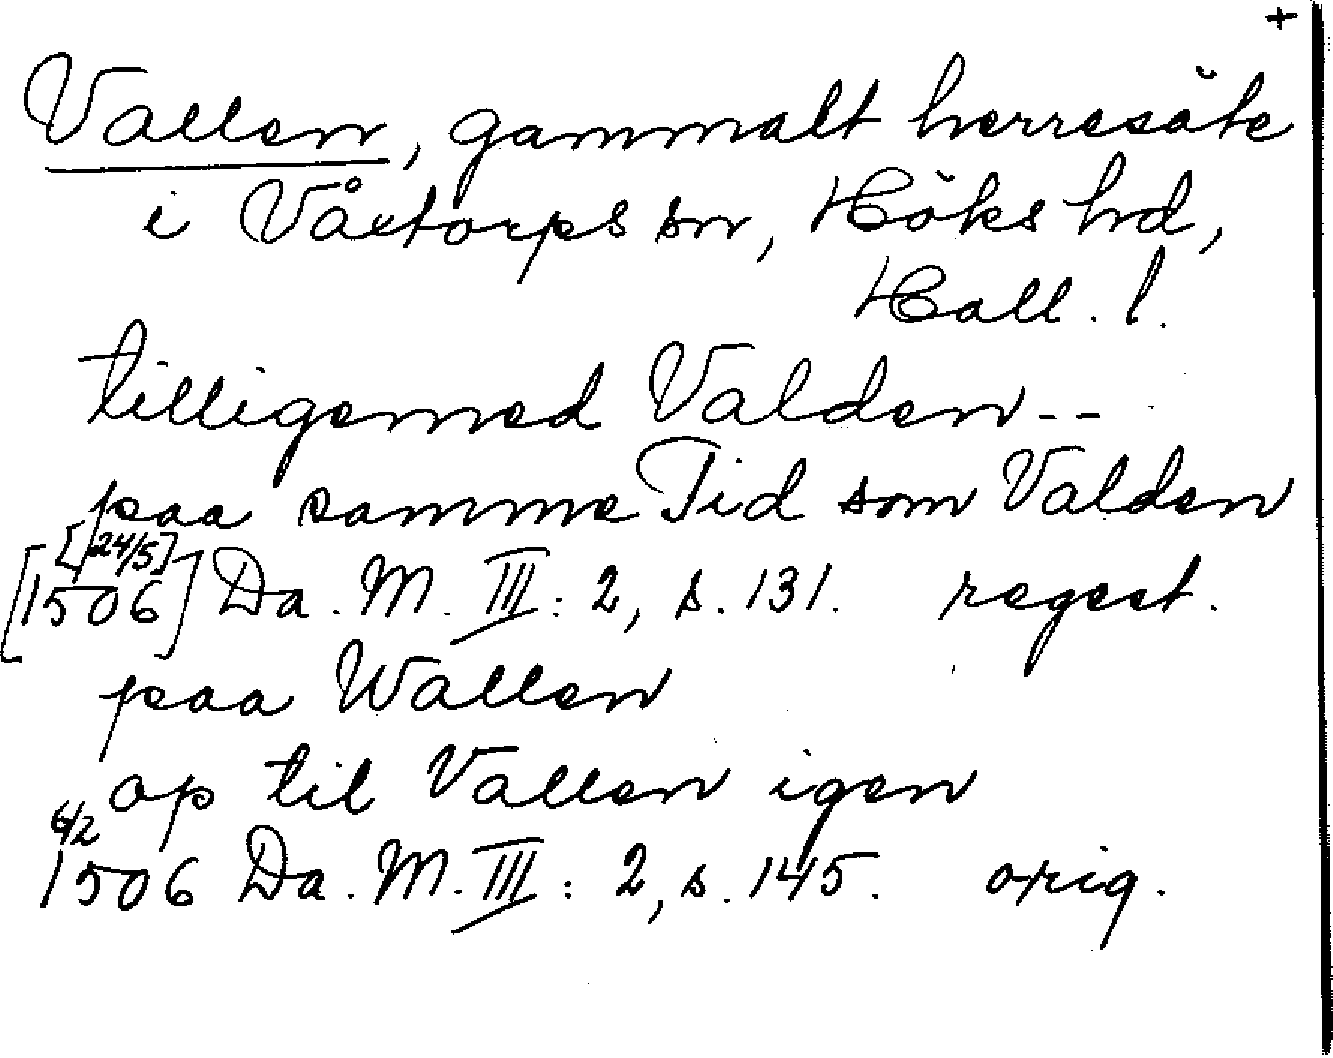 +
Vallen, gammalt herresäte
i Våxtorps sn, Höks hd,
Hall. l.
tilligemed Valden--
paa samme Tid som Valden
[24/5]
[1506] Da. M. III: 2, s. 131. regest.
paa Wallen
op til Vallen igen
6/2
1506 Da. M. III: 2, s. 145. orig.